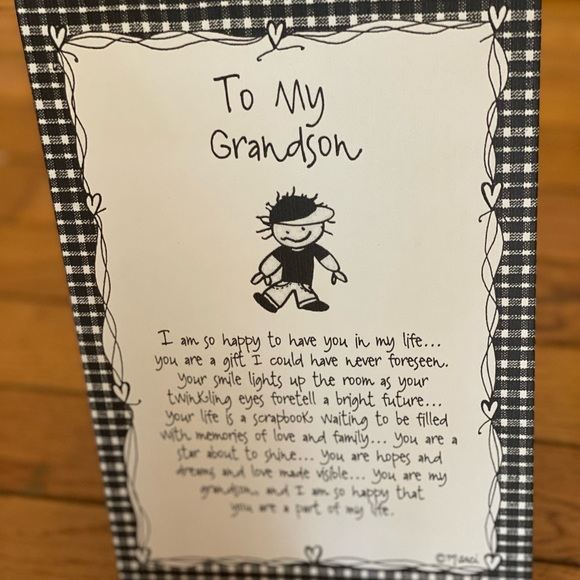 To My
Grandson
I am so happy to have you in my life...
you are a gift I could have never foreseen.
Your smile lights up the room as your
twinkling eyes foretell a bright future...
Your life is a scrapbook waiting to be filled
with memories of love and family... You are a
star about to shine... You are hopes and
dreams and love made visible... You are my
grandson, and I am so happy that
you are a part of my life.
© Marci